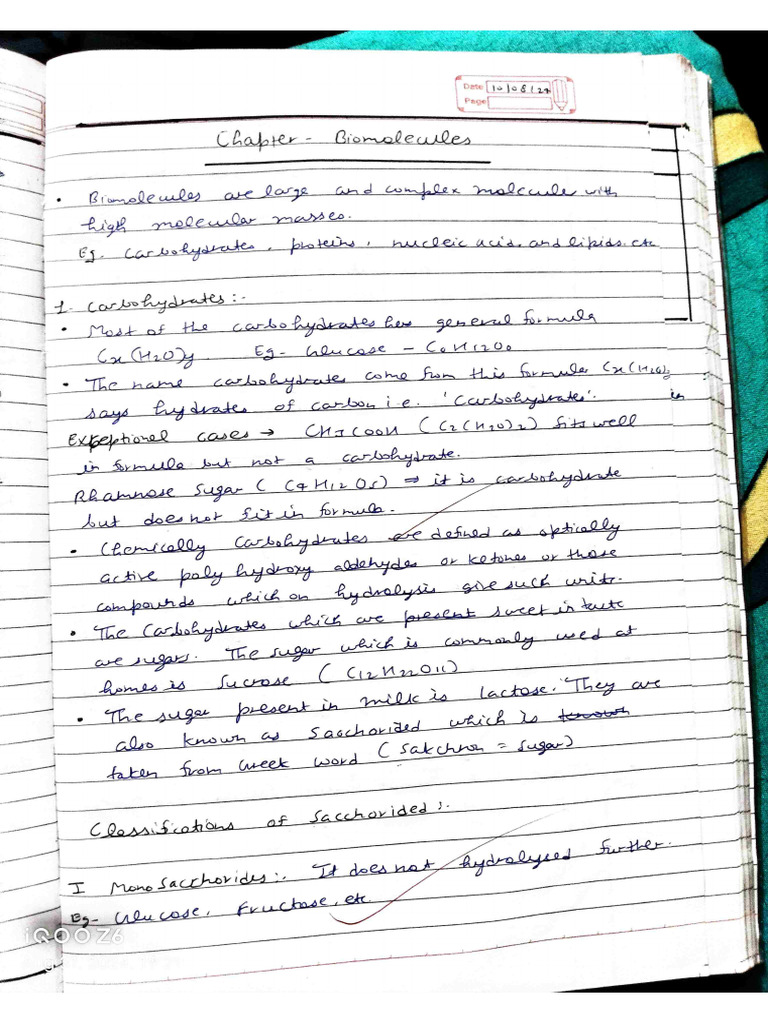 Date 10/08/24
Page
Chapter - Biomolecules
• Biomolecules are large and complex molecule with
high molecular masses.
Eg. Carbohydrates, proteins, nucleic acids and lipids. etc
1. Carbohydrates:-
• Most of the carbohydrates has general formula
Cx(H2O)y. Eg- Glucose - C6H12O6
• The name carbohydrates come from this formula Cx(H2O)y
says hydrates of carbon i.e. 'Carbohydrates'. in
Exceptional cases → CH3COOH (C2(H2O)2) fits well
in formula but not a carbohydrate.
Rhamnose sugar (C4H12O5) ⇒ it is carbohydrate
but does not fit in formula.
• Chemically Carbohydrates are defined as optically
active poly hydroxy aldehydes or ketones or those
compounds which on hydrolysis give such units.
• The Carbohydrates which are present sweet in taste
are sugars. The sugar which is commonly used at
homes is Sucrose (C12H22O11)
• The sugar present in milk is lactose. They are
also known as Saccharided which is known
taken from Greek word (Sakchron = sugar)
Classifications of Saccharided:-
I Mono Saccharides:- It does not hydrolysed further.
Eg- Glucose, Fructose, etc.
iQOO Z6